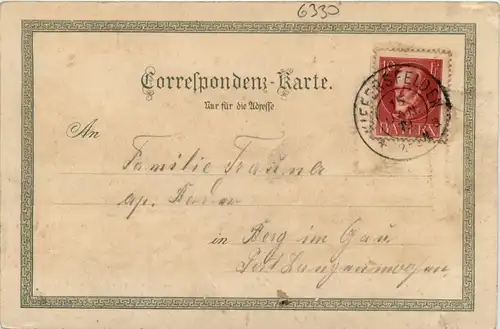 6330
Correspondenz-Karte.
Nur für die Adresse
KIEFERSFELDEN
An
Familie
in Berg im Gau
Post Langenmosen